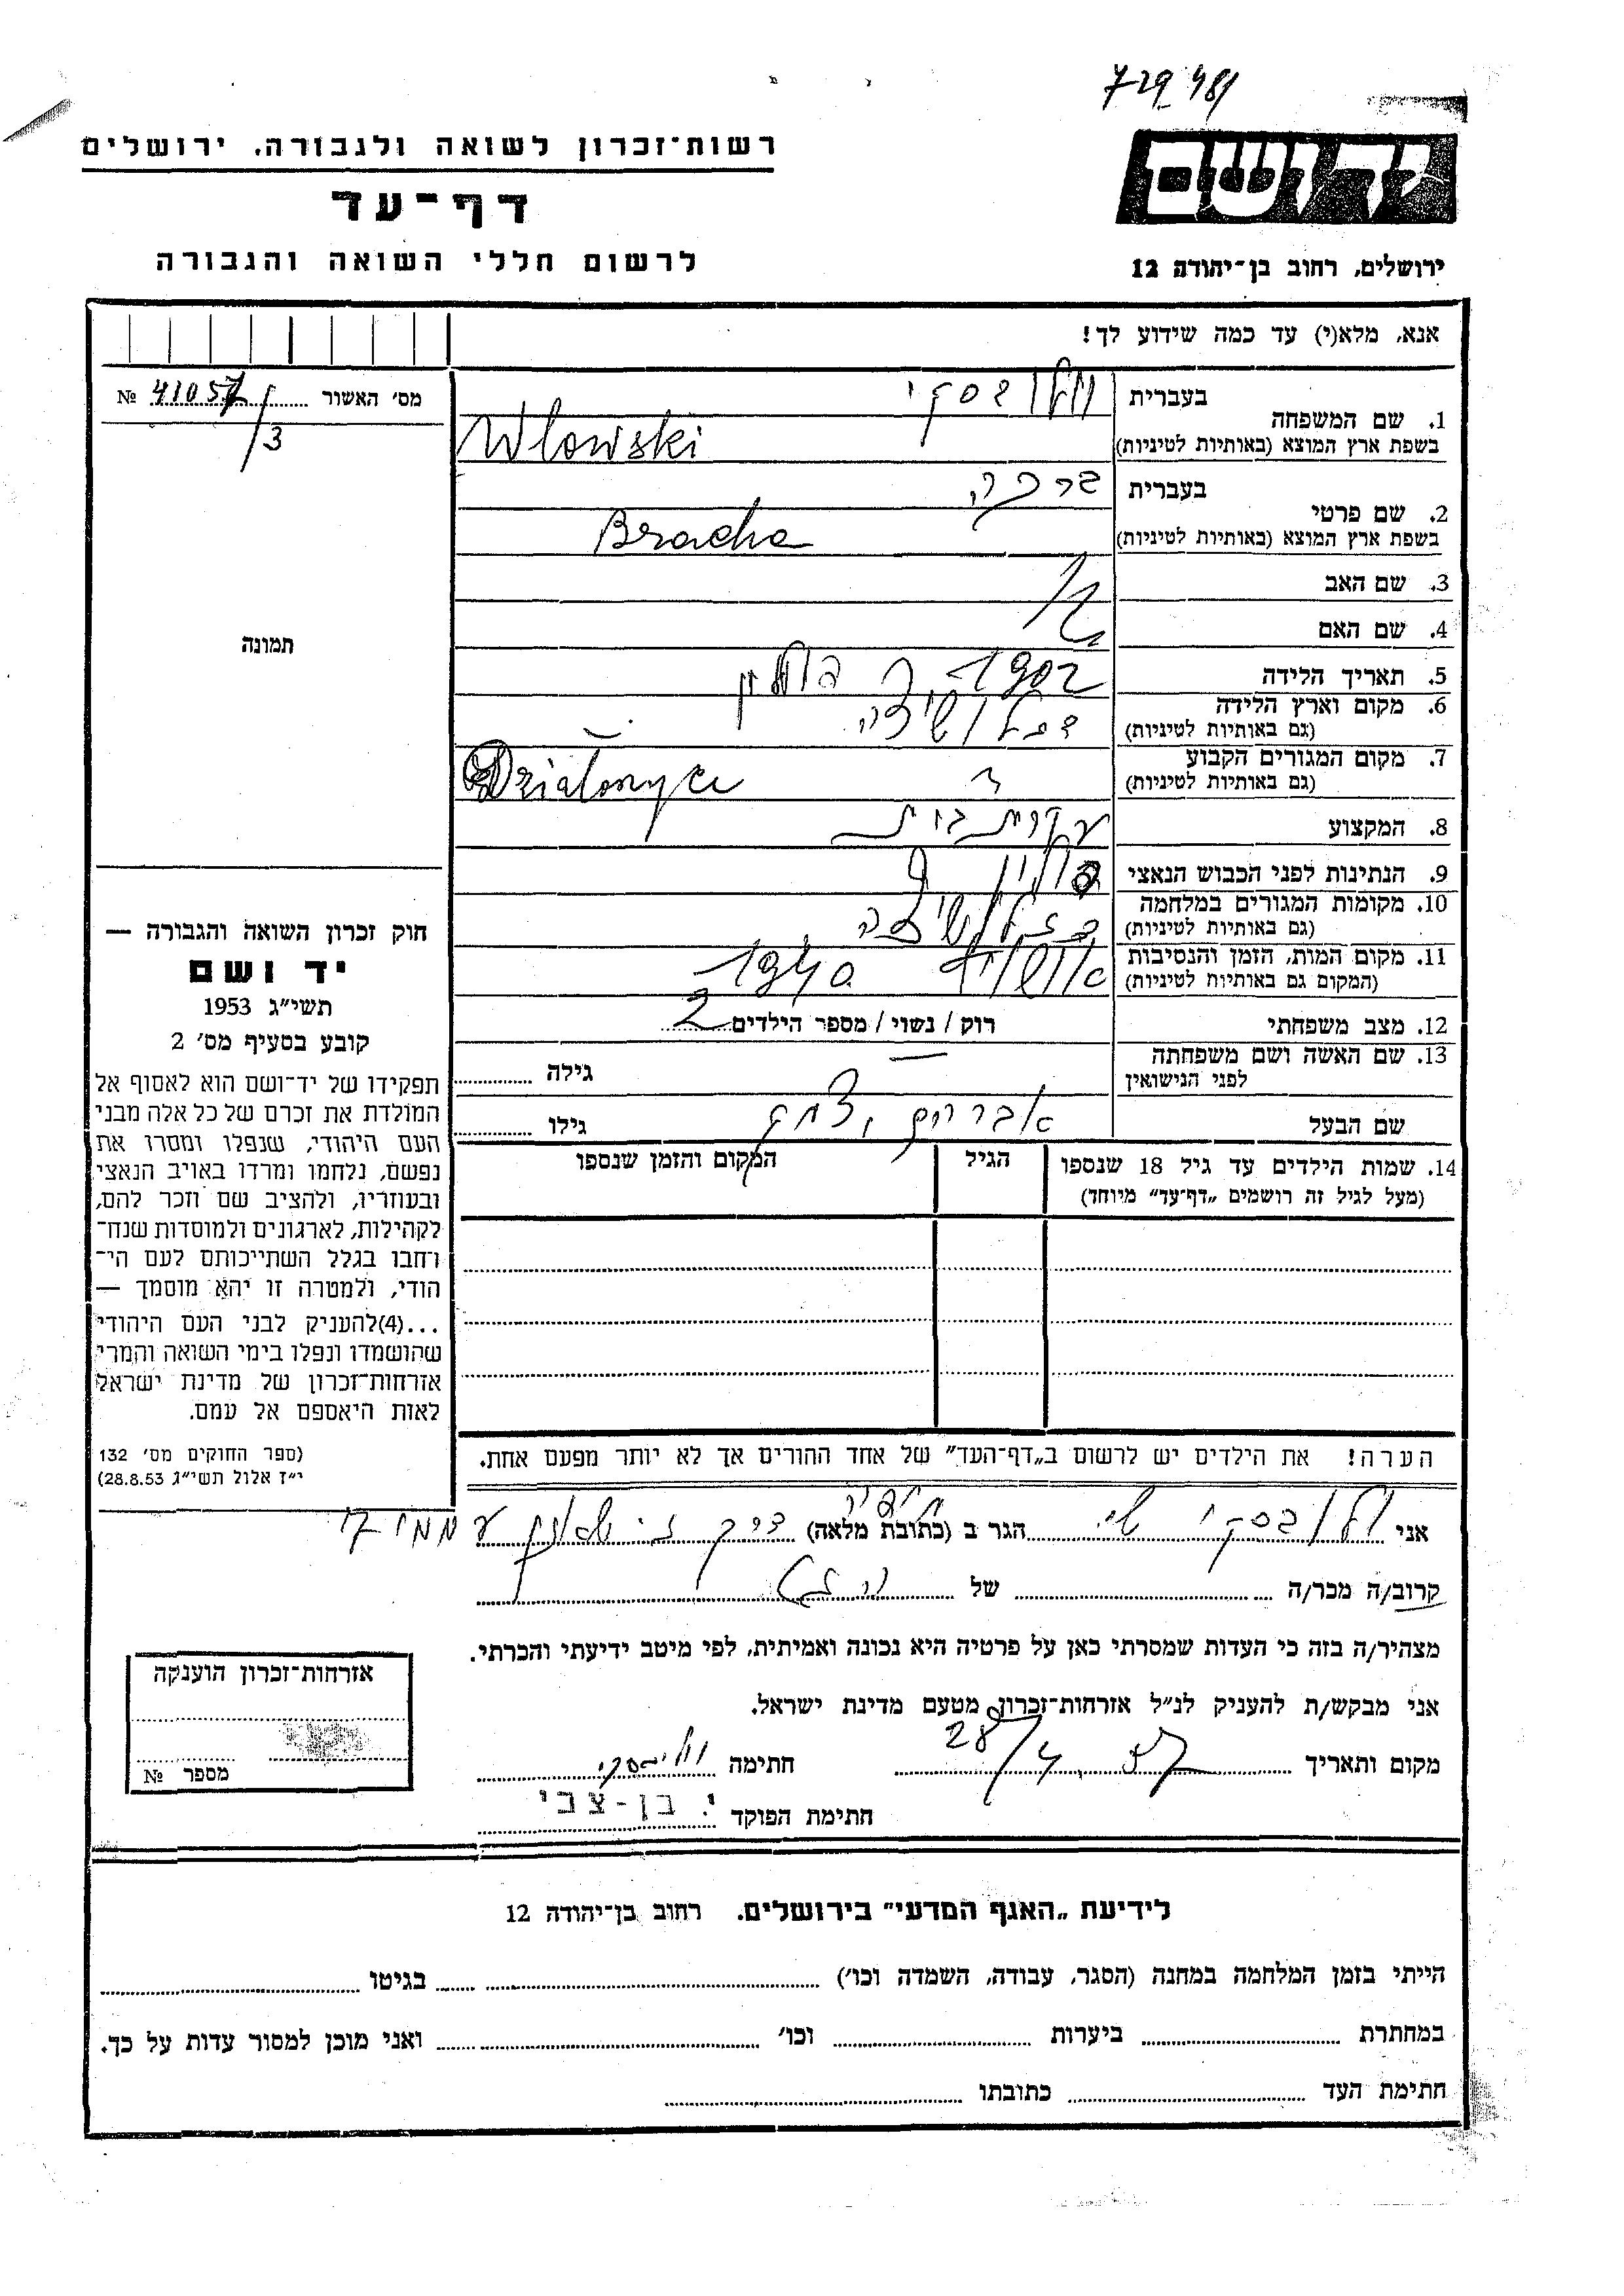 רשות־זכרון לשואה ולגבורה. ירושלים
דף־עד
לרשום חללי השואה והגבורה
ידושם
ירושלים, רחוב בן־יהודה 12
אנא, מלא(י) עד כמה שידוע לך!
מס׳ האשור № 41057/3
1. שם המשפחה
בעברית
בשפת ארץ המוצא (באותיות לטיניות) Wlowski
2. שם פרטי
בעברית ברכה
בשפת ארץ המוצא (באותיות לטיניות) Bracha
3. שם האב
4. שם האם
5. תאריך הלידה 1902
6. מקום וארץ הלידה
(גם באותיות לטיניות)
7. מקום המגורים הקבוע
(גם באותיות לטיניות)
8. המקצוע עקרת בית
9. הנתינות לפני הכבוש הנאצי פולין
10. מקומות המגורים במלחמה
(גם באותיות לטיניות)
11. מקום המות, הזמן והנסיבות
(המקום גם באותיות לטיניות)
12. מצב משפחתי רוק / נשוי / מספר הילדים 2
13. שם האשה ושם משפחתה
לפני הנישואין
גילה
שם הבעל אברהם יצחק
גילו
14. שמות הילדים עד גיל 18 שנספו
(מעל לגיל זה רושמים „דף־עד״ מיוחד)
הגיל
המקום והזמן שנספו
הערה! את הילדים יש לרשום ב„דף־העד״ של אחד ההורים אך לא יותר מפעם אחת.
תמונה
חוק זכרון השואה והגבורה —
יד ושם
תשי״ג 1953
קובע בסעיף מס׳ 2
תפקידו של יד־ושם הוא לאסוף אל
המולדת את זכרם של כל אלה מבני
העם היהודי, שנפלו ומסרו את
נפשם, נלחמו ומרדו באויב הנאצי
ובעוזריו, ולהציב שם וזכר להם,
לקהילות, לארגונים ולמוסדות שנח־
רחבו בגלל השתייכותם לעם הי־
הודי, ולמטרה זו יהא מוסמך —
...(4)להעניק לבני העם היהודי
שהושמדו ונפלו בימי השואה והמרי
אזרחות־זכרון של מדינת ישראל
לאות היאספם אל עמם.
(ספר החוקים מס׳ 132
י״ז אלול תשי״ג 28.8.53)
אני
הגר ב (כתובת מלאה)
קרוב/ה מכר/ה של
מצהיר/ה בזה כי העדות שמסרתי כאן על פרטיה היא נכונה ואמיתית, לפי מיטב ידיעתי והכרתי.
אני מבקש/ת להעניק לנ״ל אזרחות־זכרון מטעם מדינת ישראל.
מקום ותאריך
חתימה
חתימת הפוקד י. בן-צבי
אזרחות־זכרון הוענקה
מספר №
לידיעת „האגף המדעי״ בירושלים. רחוב בן־יהודה 12
הייתי בזמן המלחמה במחנה (הסגר, עבודה, השמדה וכו׳) בגיטו
במחתרת ביערות וכו׳ ואני מוכן למסור עדות על כך.
חתימת העד כתובתו